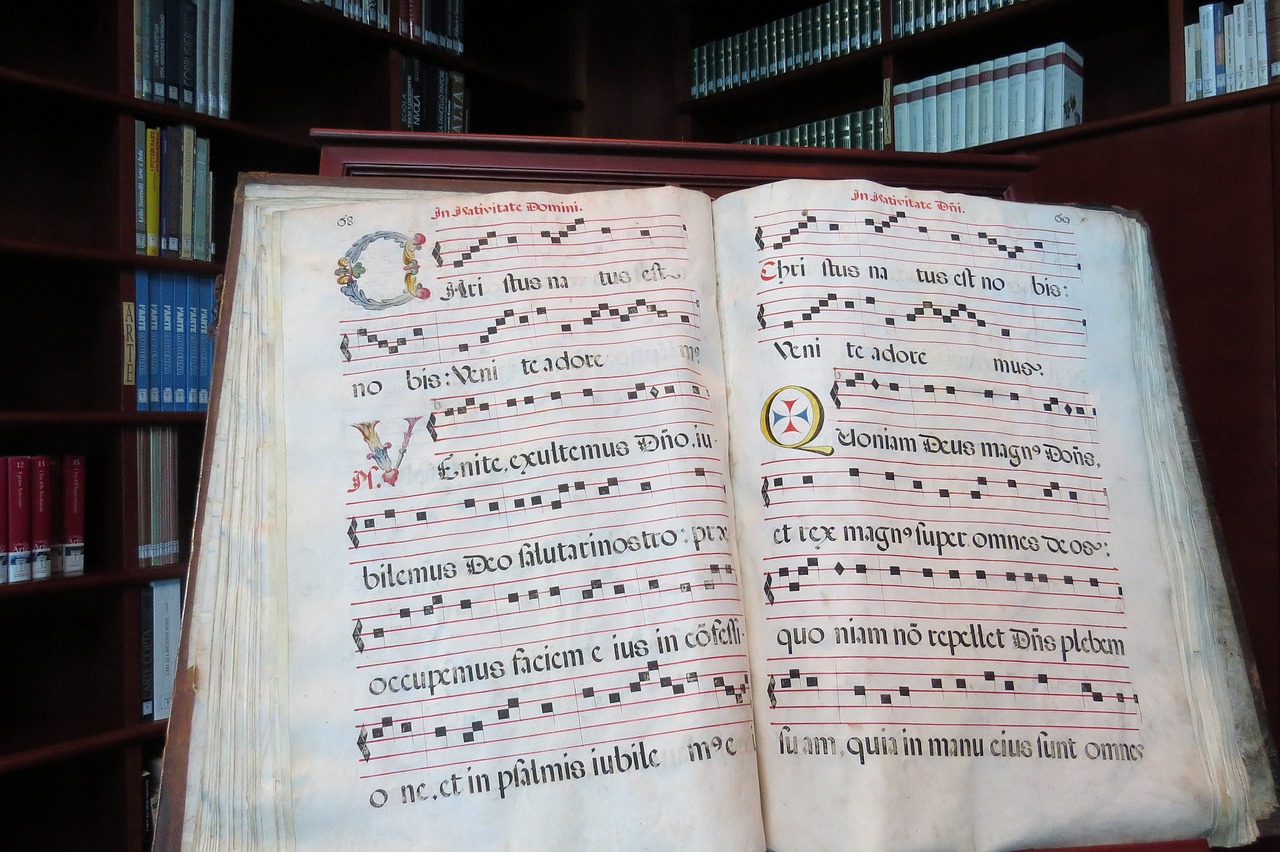 68
In Nativitate Domini.
CHri stus na tus est
no bis: Veni te adore m9
Ps. VEnite, exultemus Dño. iu-
bilemus Deo salutarinostro: pre
occupemus faciem e ius in cõfessi-
o ne, et in psalmis iubile m9 e
In Nativitate Dñi.
69
Chri stus na tus est no bis:
Veni te adore mus.
Quoniam Deus magn9 Doñs,
et rex magn9 super omnes deos:
quo niam nõ repellet Dñs plebem
su am, quia in manu eius sunt omnes
LE CORBUSIER
ARTE
L'ARTE
L'ARTE
L'ARTE
L'ARTE
L'ARTE
L'ARTE
12
13